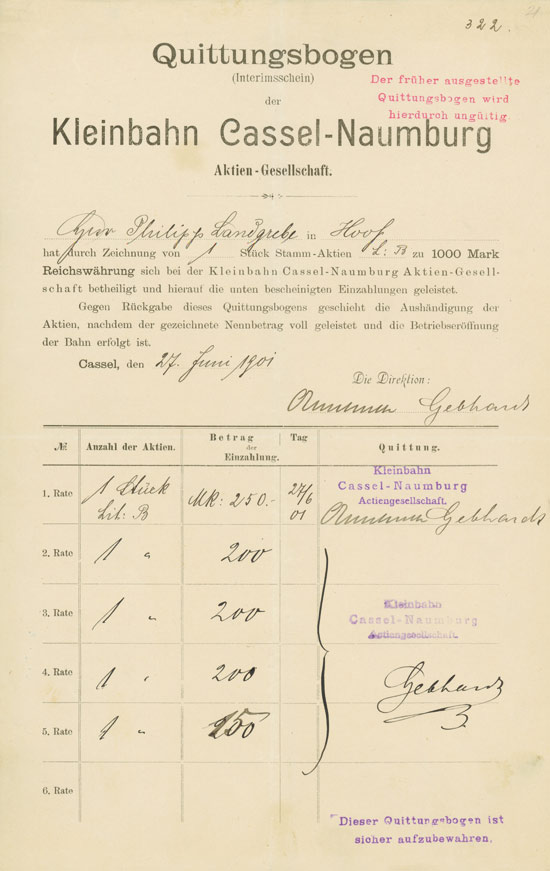 21
322.
Quittungsbogen
(Interimsschein)
der
Der früher ausgestellte
Quittungsbogen wird
hierdurch ungültig.
Kleinbahn Cassel-Naumburg
Aktien-Gesellschaft.
Herr Philipp Landgrebe in Hoof
hat durch Zeichnung von 1 Stück Stamm-Aktien L: B zu 1000 Mark
Reichswährung sich bei der Kleinbahn Cassel-Naumburg Aktien-Gesell-
schaft betheiligt und hierauf die unten bescheinigten Einzahlungen geleistet.
Gegen Rückgabe dieses Quittungsbogens geschieht die Aushändigung der
Aktien, nachdem der gezeichnete Nennbetrag voll geleistet und die Betriebseröffnung
der Bahn erfolgt ist.
Cassel, den 27. Juni 1901
Die Direktion:
Gebhardt
№ Anzahl der Aktien. Betrag der Einzahlung. Tag Quittung.
Kleinbahn
Cassel-Naumburg
Actiengesellschaft.
1. Rate 1 Stück Lit: B Mk: 250.- 27/6 01 Gebhardt
2. Rate 1 " 200
3. Rate 1 " 200
Kleinbahn
Cassel-Naumburg
Actiengesellschaft.
4. Rate 1 " 200
Gebhardt
5. Rate 1 " 150
6. Rate
Dieser Quittungsbogen ist
sicher aufzubewahren.